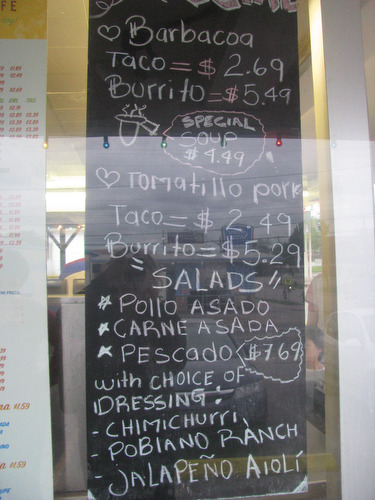 ♡ Barbacoa
Taco = $2.69
Burrito = $5.49
SPECIAL
SOUP
$4.49
♡ Tomatillo pork
Taco = $2.49
Burrito = $5.29
"SALADS"
* Pollo ASADO
* CARNE ASADA
* PESCADO $7.69
with CHOICE OF
DRESSING:
- CHIMICHURRI,
- POBLANO RANCH
- JALAPEÑO AIOLÍ